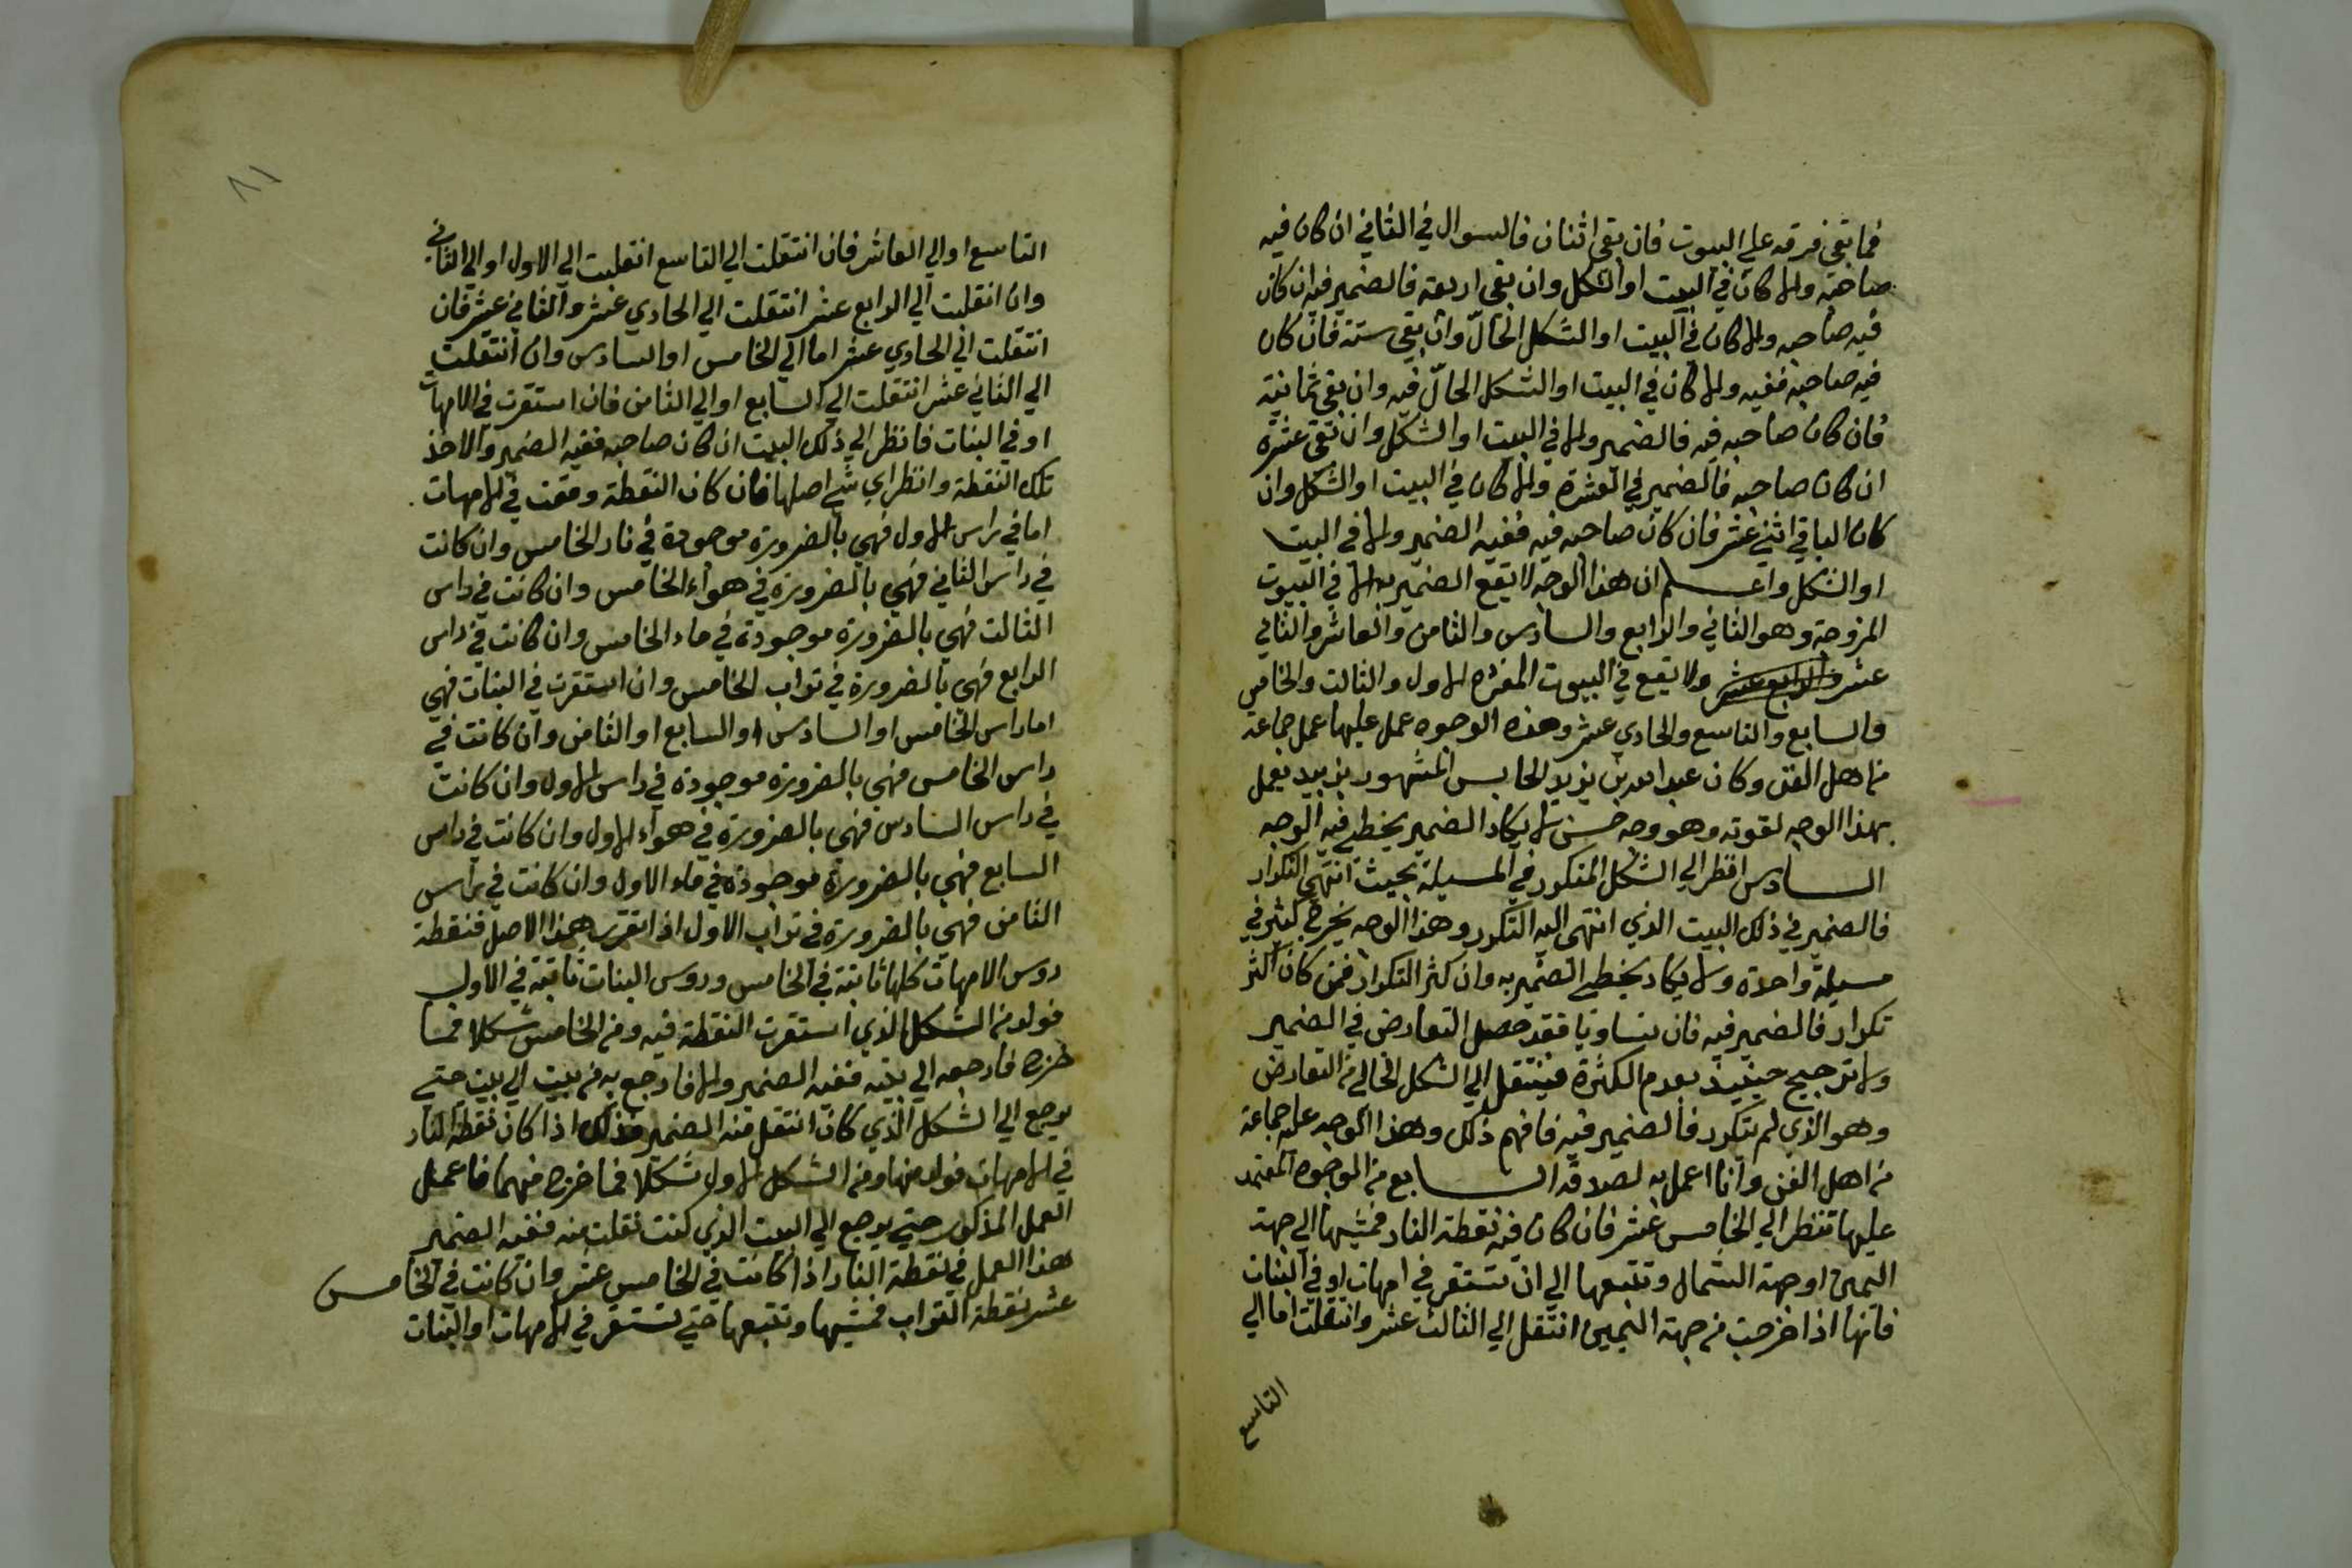 فما بقي فرقه علي البيوت فان بقي اثنان فالسوال في الثاني ان كان فيه
صاحبه والا كان في البيت او الشكل وان بقي اربعة فالضمير فيه ان كان
فيه صاحبه والا كان في البيت او الشكل الحالّ وان بقي ستة فان كان
فيه صاحبه ففيه والا كان في البيت او الشكل الحالّ فيه وان بقي ثمانية
فان كان صاحبه فيه فالضمير والا في البيت او الشكل وان بقي عشرة
ان كان صاحبه فالضمير في العشرة والا كان في البيت او الشكل وان
كان الباقي اثني عشر فان كان صاحبه فيه ففيه الضمير والا في البيت
او الشكل واعلم ان هذا الوجه لا يقع الضمير به الا في البيوت
المزوجة وهو الثاني والرابع والسادس والثامن والعاشر والثاني
عشر والرابع عشر ولا يقع في البيوت المفرده الاول والثالث والخامس
والسابع والتاسع والحادي عشر وهذه الوجوه عمل عليها عمل جماعة
من اهل الفن وكان عبد الله بن يزيد الحابس المشهور بزبيد يعمل
بهذا الوجه لقوته وهو وجه حسن لا يكاد الضمير يخطي فيه الوجه
السادس انظر الي الشكل المتكرر في المسيلة بحيث انتهي التكرار
فالضمير في ذلك البيت الذي انتهي اليه التكرر وهذا الوجه يخرج كثير في
مسيلة واحدة ولا يكاد يخطي الضمير به وان كثر التكرار فمن كان اكثر
تكرار فالضمير فيه فان تساويا فقد حصل التعارض في الضمير
ولا ترجيح حينيذ بعدم الكثرة فينتقل الي الشكل الخالي من التعارض
وهو الذي لم يتكرر فالضمير فيه فافهم ذلك وهذا الوجه عليه جماعة
من اهل الفن وانا اعمل به لصدقه السابع من الوجوه المعتمد
عليها تنظر الي الخامس عشر فان كان فيه نقطة النار فمشيها الي جهة
اليمين او جهة الشمال وتتبعها الي ان تستقر في امهات او في البنات
فانها اذا خرجت من جهة اليمين انتقل الي الثالث عشر وانتقلت اما الي
التاسع
٨١
التاسع او الي العاشر فان انتقلت الي التاسع انتقلت الي الاول او الي الثاني
وان انتقلت الي الرابع عشر انتقلت الي الحادي عشر والثاني عشر فان
انتقلت الي الحادي عشر اما الي الخامس او السادس وان انتقلت
الي الثاني عشر انتقلت الي السابع او الي الثامن فان استقرت في الامهات
او في البنات فانظر الي ذلك البيت ان كان صاحبه ففيه الضمير والا خذ
تلك النقطة وانظر اي شي اصلها فان كان النقطة وقعت في الامهات
اما في راس الاول فهي بالضرورة موجودة في نار الخامس وان كانت
في راس الثاني فهي بالضرورة في هواء الخامس وان كانت في راس
الثالث فهي بالضرورة موجودة في ماء الخامس وان كانت في راس
الرابع فهي بالضرورة في تراب الخامس وان استقرت في البنات فهي
اما راس الخامس او السادس او السابع او الثامن وان كانت في
راس الخامس فهي بالضرورة موجودة في راس الاول وان كانت
في راس السادس فهي بالضرورة في هواء الاول وان كانت في راس
السابع فهي بالضرورة موجودة في ماء الاول وان كانت في راس
الثامن فهي بالضرورة في تراب الاول اذا تقرر هذا الاصل فنقطة
روس الامهات كلها ثابتة في الخامس وروس البنات ثابتة في الاول
فولد من الشكل الذي استقرت النقطة فيه ومن الخامس شكلا فما
خرج فارجعه الي بيته ففيه الضمير والا فارجع به من بيت الي بيت حتي
يرجع الي الشكل الذي كان انتقل منه الضمير وذلك اذا كان نقطة النار
في الامهات فولد منها ومن الشكل الاول شكلا فما خرج منهما فاعمل
العمل المذكور حتي يرجع الي البيت الذي كنت نقلت منه ففيه الضمير
هذا العمل في نقطة النار اذا كانت في الخامس عشر وان كانت في الخامس
عشر نقطة التراب فمشيها وتتبعها حتي تستقر في الامهات او البنات